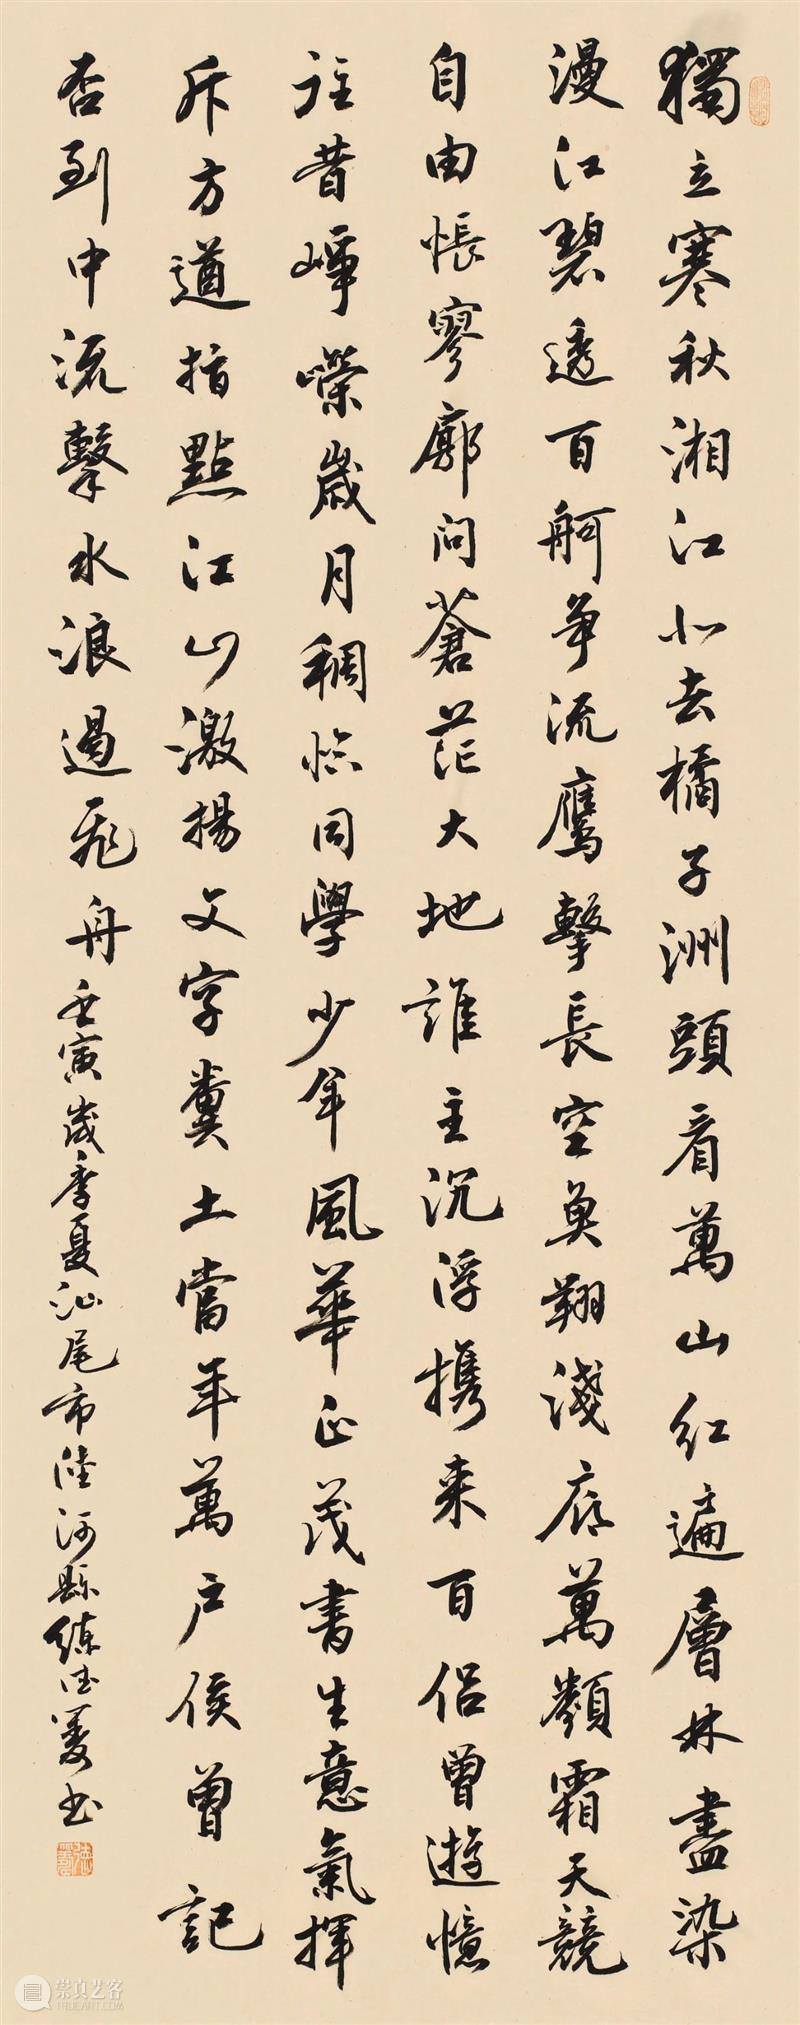 獨立寒秋湘江北去橘子洲頭看萬山紅遍層林盡染
漫江碧透百舸争流鷹擊長空魚翔淺底萬類霜天競
自由悵寥廓問蒼茫大地誰主沉浮携来百侣曾遊憶
往昔崢嶸歲月稠恰同學少年風華正茂書生意氣揮
斥方遒指點江山激揚文字糞土當年萬户侯曾記
否到中流擊水浪遏飛舟 壬寅歲季夏汕尾市陸河縣練德書
崇真艺客
TRUEART.COM